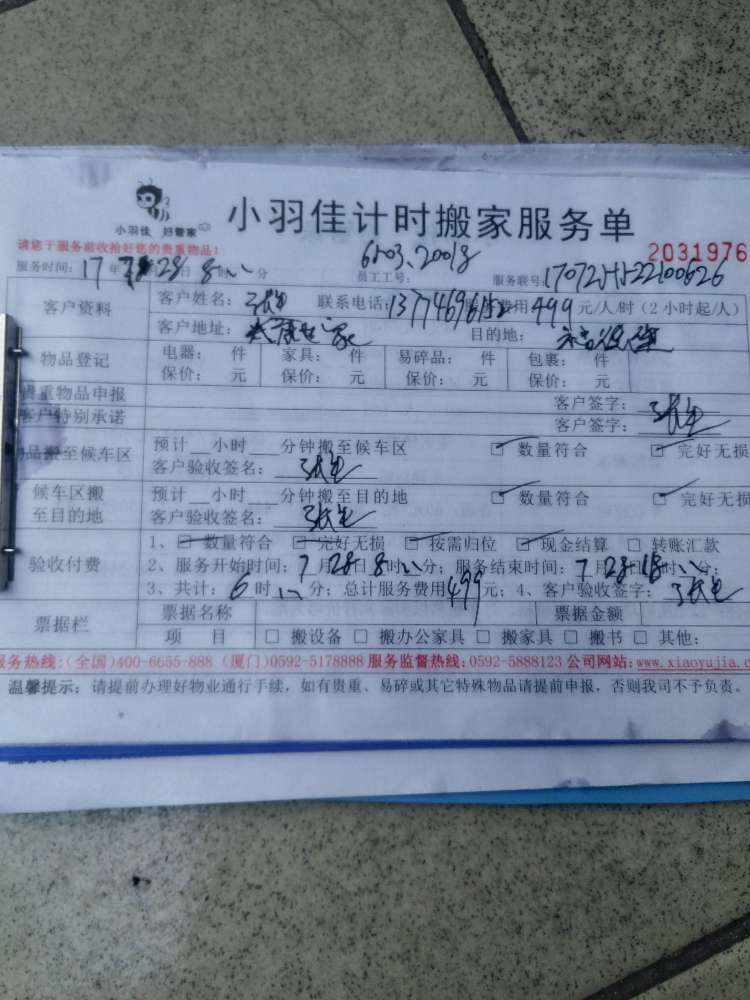 小羽佳 好管家
小羽佳计时搬家服务单
请您于服务前收拾好您的贵重物品！
2031976
服务时间：17年 7 28 8 分 员工工号： 6103.20018 服务联号：
客户资料
客户姓名：张生 联系电话： 费用499元/人/时（2小时起/人）
客户地址： 目的地：
物品登记
电器： 件 家具： 件 易碎品： 件 包裹： 件
保价： 元 保价： 元 保价： 元 保价： 元
贵重物品申报 客户签字：
客户特别承诺 客户签字：张生
品搬至候车区
预计__小时__分钟搬至候车区 数量符合 完好无损
客户验收签名：张生
候车区搬至目的地
预计__小时__分钟搬至目的地 数量符合 完好无损
客户验收签名：张生
验收付费
1、数量符合 完好无损 按需归位 现金结算 转账汇款
2、服务开始时间：7月28日8时 分；服务结束时间：7月28日18时 分；
3、共计：6时 分；总计服务费用499元；4、客户验收签字：张生
票据栏
票据名称 票据金额
项 目 搬设备 搬办公家具 搬家具 搬书 其他：
服务热线：（全国）400-6655-888（厦门）0592-5178888 服务监督热线：0592-5888123 公司网站：www.xiaoyujia.c
温馨提示：请提前办理好物业通行手续，如有贵重、易碎或其它特殊物品请提前申报，否则我司不予负责。